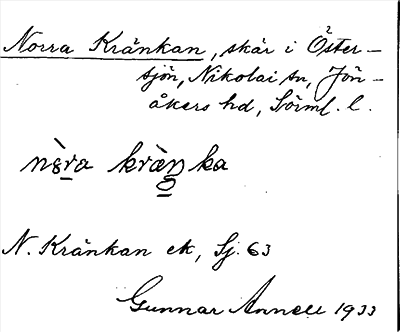 Norra Kränkan, skär i Öster-
sjön, Nikolai sn, Jön-
åkers hd, Sörml. l.
kräŋka
N. Kränkan ek, Sj. 63
Gunnar Annell 1933